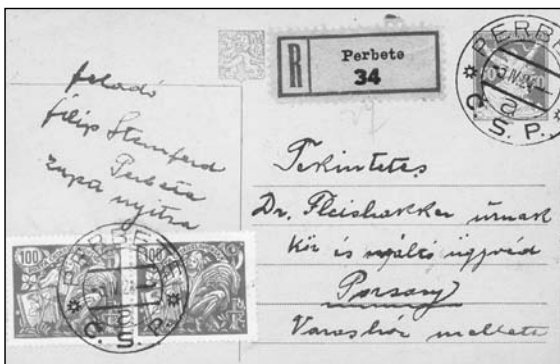 R
Perbete
34
PERBETE
IV
a
Č. S. P.
feladó
filip Stemferd
Perbete
zupa nyitra
Tekintetes
Dr. Fleishakker úrnak
Köz és váltó ügyvéd
Porsony
Varoshoz mellett
100
100
PERBETE
IV
a
Č. S. P.